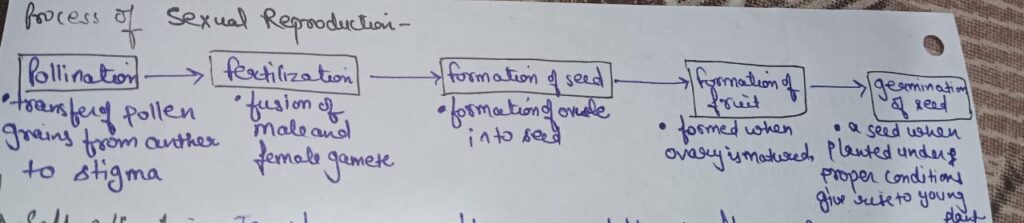 Process of Sexual Reproduction -
Pollination → fertilization → formation of seed → formation of fruit → germination of seed
• transfer of pollen
grains from anther
to stigma
• fusion of
male and
female gamete
• formation of ovule
into seed
• formed when
ovary is matured,
• a seed when
planted under
proper conditions
give rise to young
plant